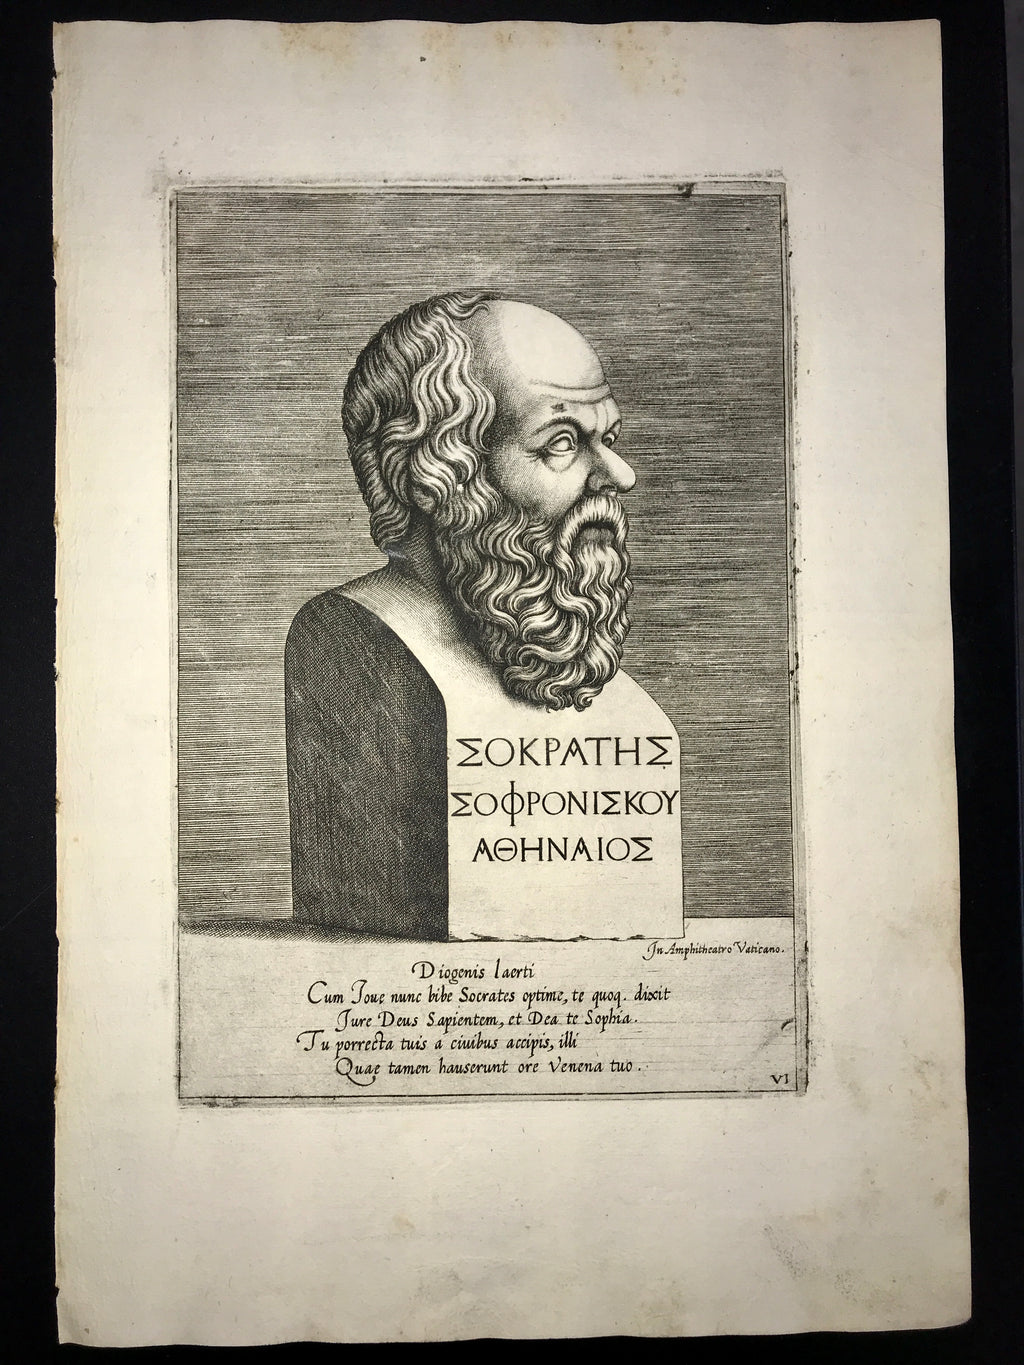 ΣΟΚΡΑΤΗΣ
ΣΟΦΡΟΝΙΣΚΟΥ
ΑΘΗΝΑΙΟΣ
In Amphitheatro Vaticano.
Diogenis laerti
Cum Ioue nunc bibe Socrates optime, te quoq. dixit
Iure Deus Sapientem, et Dea te Sophia.
Tu porrecta tuis a ciuibus accipis, illi
Quae tamen hauserunt ore Venena tuo.
VI